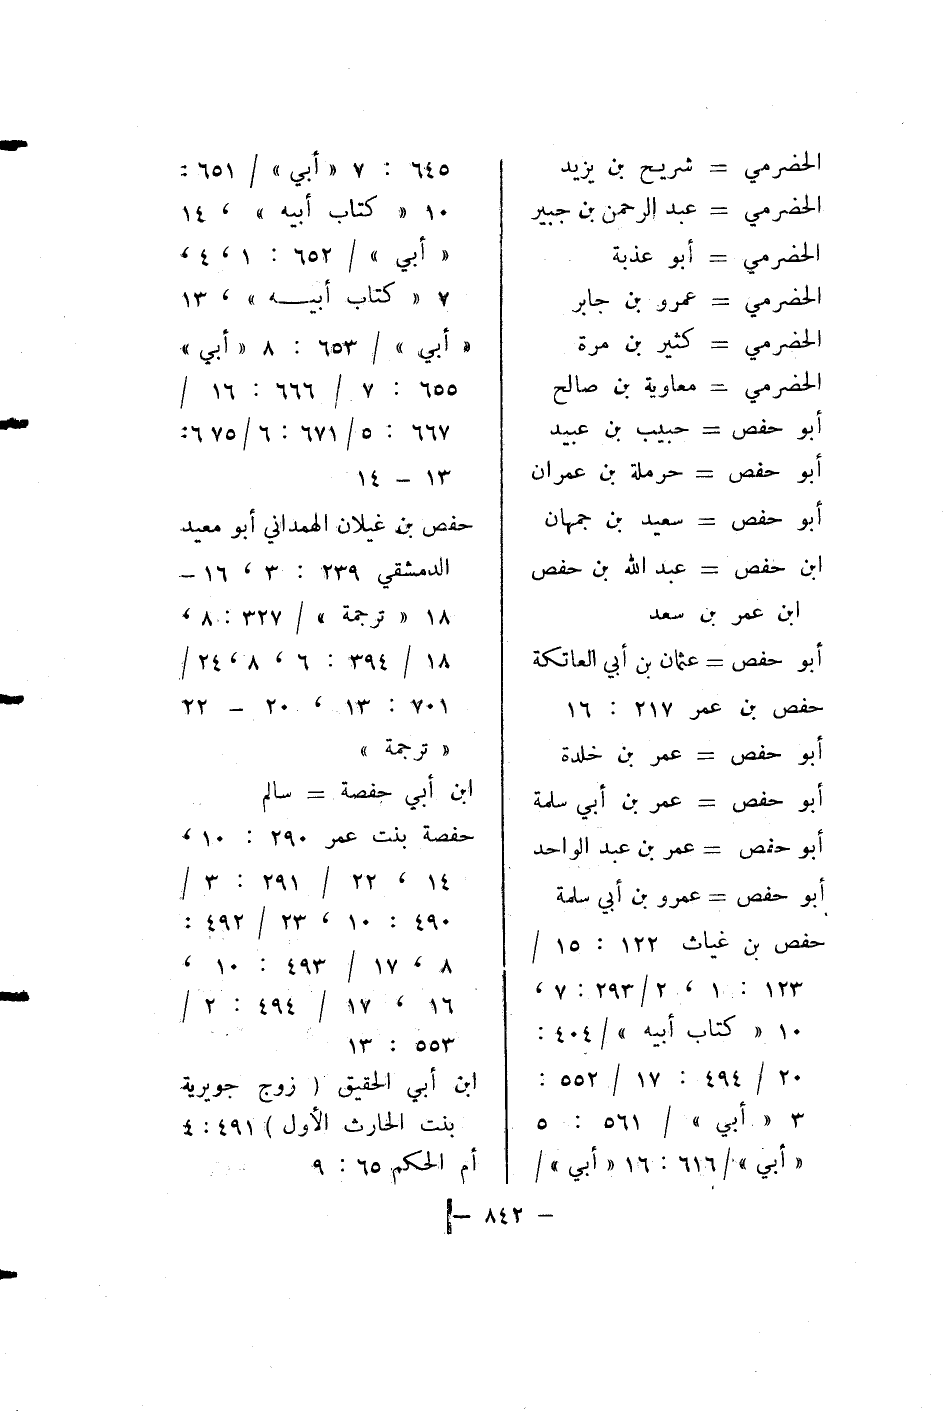 الحضرمي = شريح بن يزيد
الحضرمي = عبد الرحمن بن جبير
الحضرمي = أبو عذبة
الحضرمي = عمرو بن جابر
الحضرمي = كثير بن مرة
الحضرمي = معاوية بن صالح
أبو حفص = حبيب بن عبيد
أبو حفص = حرملة بن عمران
أبو حفص = سعيد بن جمهان
ابن حفص = عبد الله بن حفص
ابن عمر بن سعد
أبو حفص = عثمان بن أبي العاتكة
حفص بن عمر ٢١٧ : ١٦
أبو حفص = عمر بن خلدة
أبو حفص = عمر بن أبي سلمة
أبو حفص = عمر بن عبد الواحد
أبو حفص = عمرو بن أبي سلمة
حفص بن غياث ١٢٢ : ١٥ /
١٢٣ : ١ ، ٢ / ٢٩٣ : ٧ ،
١٠ « كتاب أبيه » / ٤٠٤ :
٢٠ / ٤٩٤ : ١٧ / ٥٥٢ :
٣ « أبي » / ٥٦١ : ٥
« أبي » / ٦١٦ : ١٦ « أبي » /
٦٤٥ : ٧ « أبي » / ٦٥١ :
١٠ « كتاب أبيه » ، ١٤
« أبي » / ٦٥٢ : ١ ، ٤ ،
٧ « كتاب أبيـــه » ، ١٣
« أبي » / ٦٥٣ : ٨ « أبي »
٦٥٥ : ٧ / ٦٦٦ : ١٦ /
٦٦٧ : ٥ / ٦٧١ : ٦ / ٦٧٥ :
١٣ – ١٤
حفص بن غيلان الهمداني أبو معيد
الدمشقي ٢٣٩ : ٣ ، ١٦ –
١٨ « ترجمة » / ٣٢٧ : ٨ ،
١٨ / ٣٩٤ : ٦ ، ٨ ، ٢٤ /
٧٠١ : ١٣ ، ٢٠ – ٢٢
« ترجمة »
ابن أبي حفصة = سالم
حفصة بنت عمر ٢٩٠ : ١٠ ،
١٤ ، ٢٢ / ٢٩١ : ٣ /
٤٩٠ : ١٠ ، ٢٣ / ٤٩٢ :
٨ ، ١٧ / ٤٩٣ : ١٠ ،
١٦ ، ١٧ / ٤٩٤ : ٢ /
٥٥٣ : ١٣
ابن أبي الحقيق ( زوج جويرية
بنت الحارث الأول ) ٤٩١ : ٤
أم الحكم ٦٥ : ٩
– ٨٤٢ –